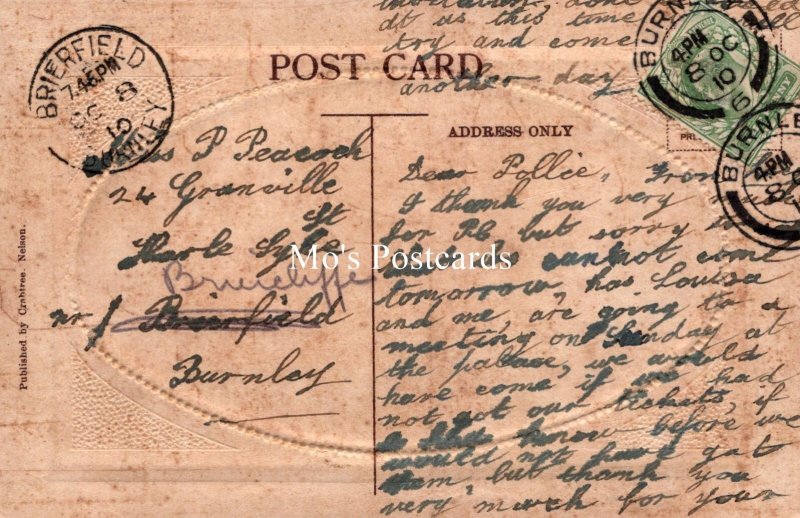 POST CARD
ADDRESS ONLY
Published by Crabtree. Nelson.
BRIERFIELD
7.45PM
OC 8
10
BURNLEY
BURNLEY
4.PM
8 OC
10
6
4.PM
P Peacock
24 Granville
St
Harle Syke
Briercliffe
nr Brierfield
Burnley
Dear Pollie, From
I thank you very
for P.C but sorry to
cannot come
tomorrow, has Louisa
and me, are going to a
meeting on Sunday at
the palace, we would
have come if we had
not got our tickets, if
know before we
would not have got
them, but thank you
very, much for your
at us this time
try and come
another day
Mo's Postcards